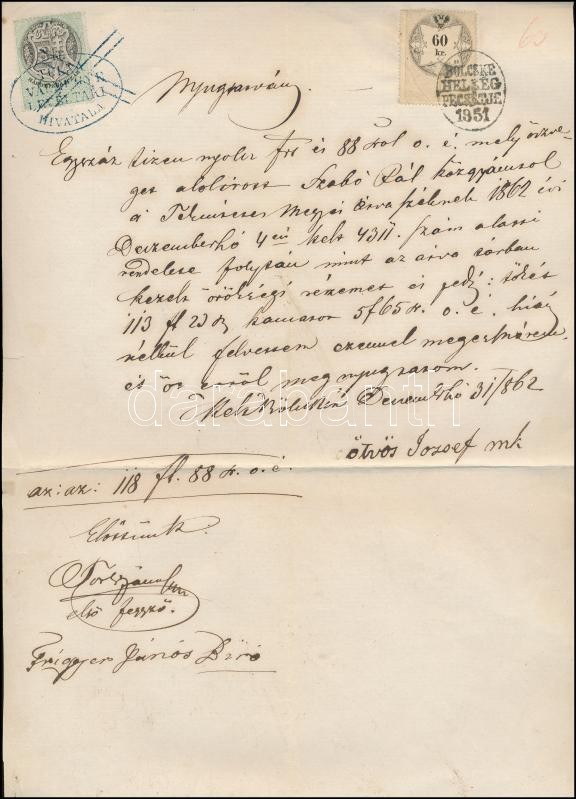 60
60
kr.
BÖLCSKE
HELSÉG
PECSÉTJE
1851
HIVATALA
Nyugtatvány
Egyszáz tizen nyolcz frt és 88 król o. é. mely össze-
get alolirott Szabó Pál közgyámtol
a Tekintetes Megyei Árva Széknek 1862 évi
Deczemberhó 4én kelt 4311. Szám alatti
rendelete folytán mint az árva tárban
kezelt örökségi részemet és pedig: tőkét
113 ft 23 kr kamatot 5f 65 kr. o. é. hiány
nélkül felvettem ezennel megesmérem
és őt erről meg nyugtatom.
Kelt Bölcskén Decemberhó 31/862
ötvös Jozsef mk
az: az: 118 ft. 88 kr. o. é.
Előttünk
első jegyző.
János Biró
darabanth